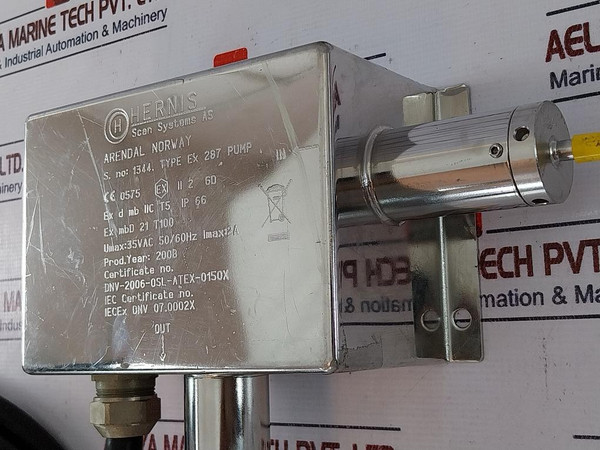 A MARINE TECH PVT. LTD.
& Industrial Automation & Machinery
AEL
Marin
HERNIS
Scan Systems AS
ARENDAL NORWAY
S. no: 1344. TYPE Ex 287 PUMP
CE 0575 Ex II 2 GD
Ex d mb IIC T5 IP 66
Ex mbD 21 T100
Umax:35VAC 50/60Hz Imax:2A
Prod.Year: 2008
Certificate no.
DNV-2006-OSL-ATEX-0150X
IEC Certificate no.
IECEx DNV 07.0002X
OUT
LTD.
inery
ECH PVT.
mation & Machi
YA MARINE TECH PVT. LTD.